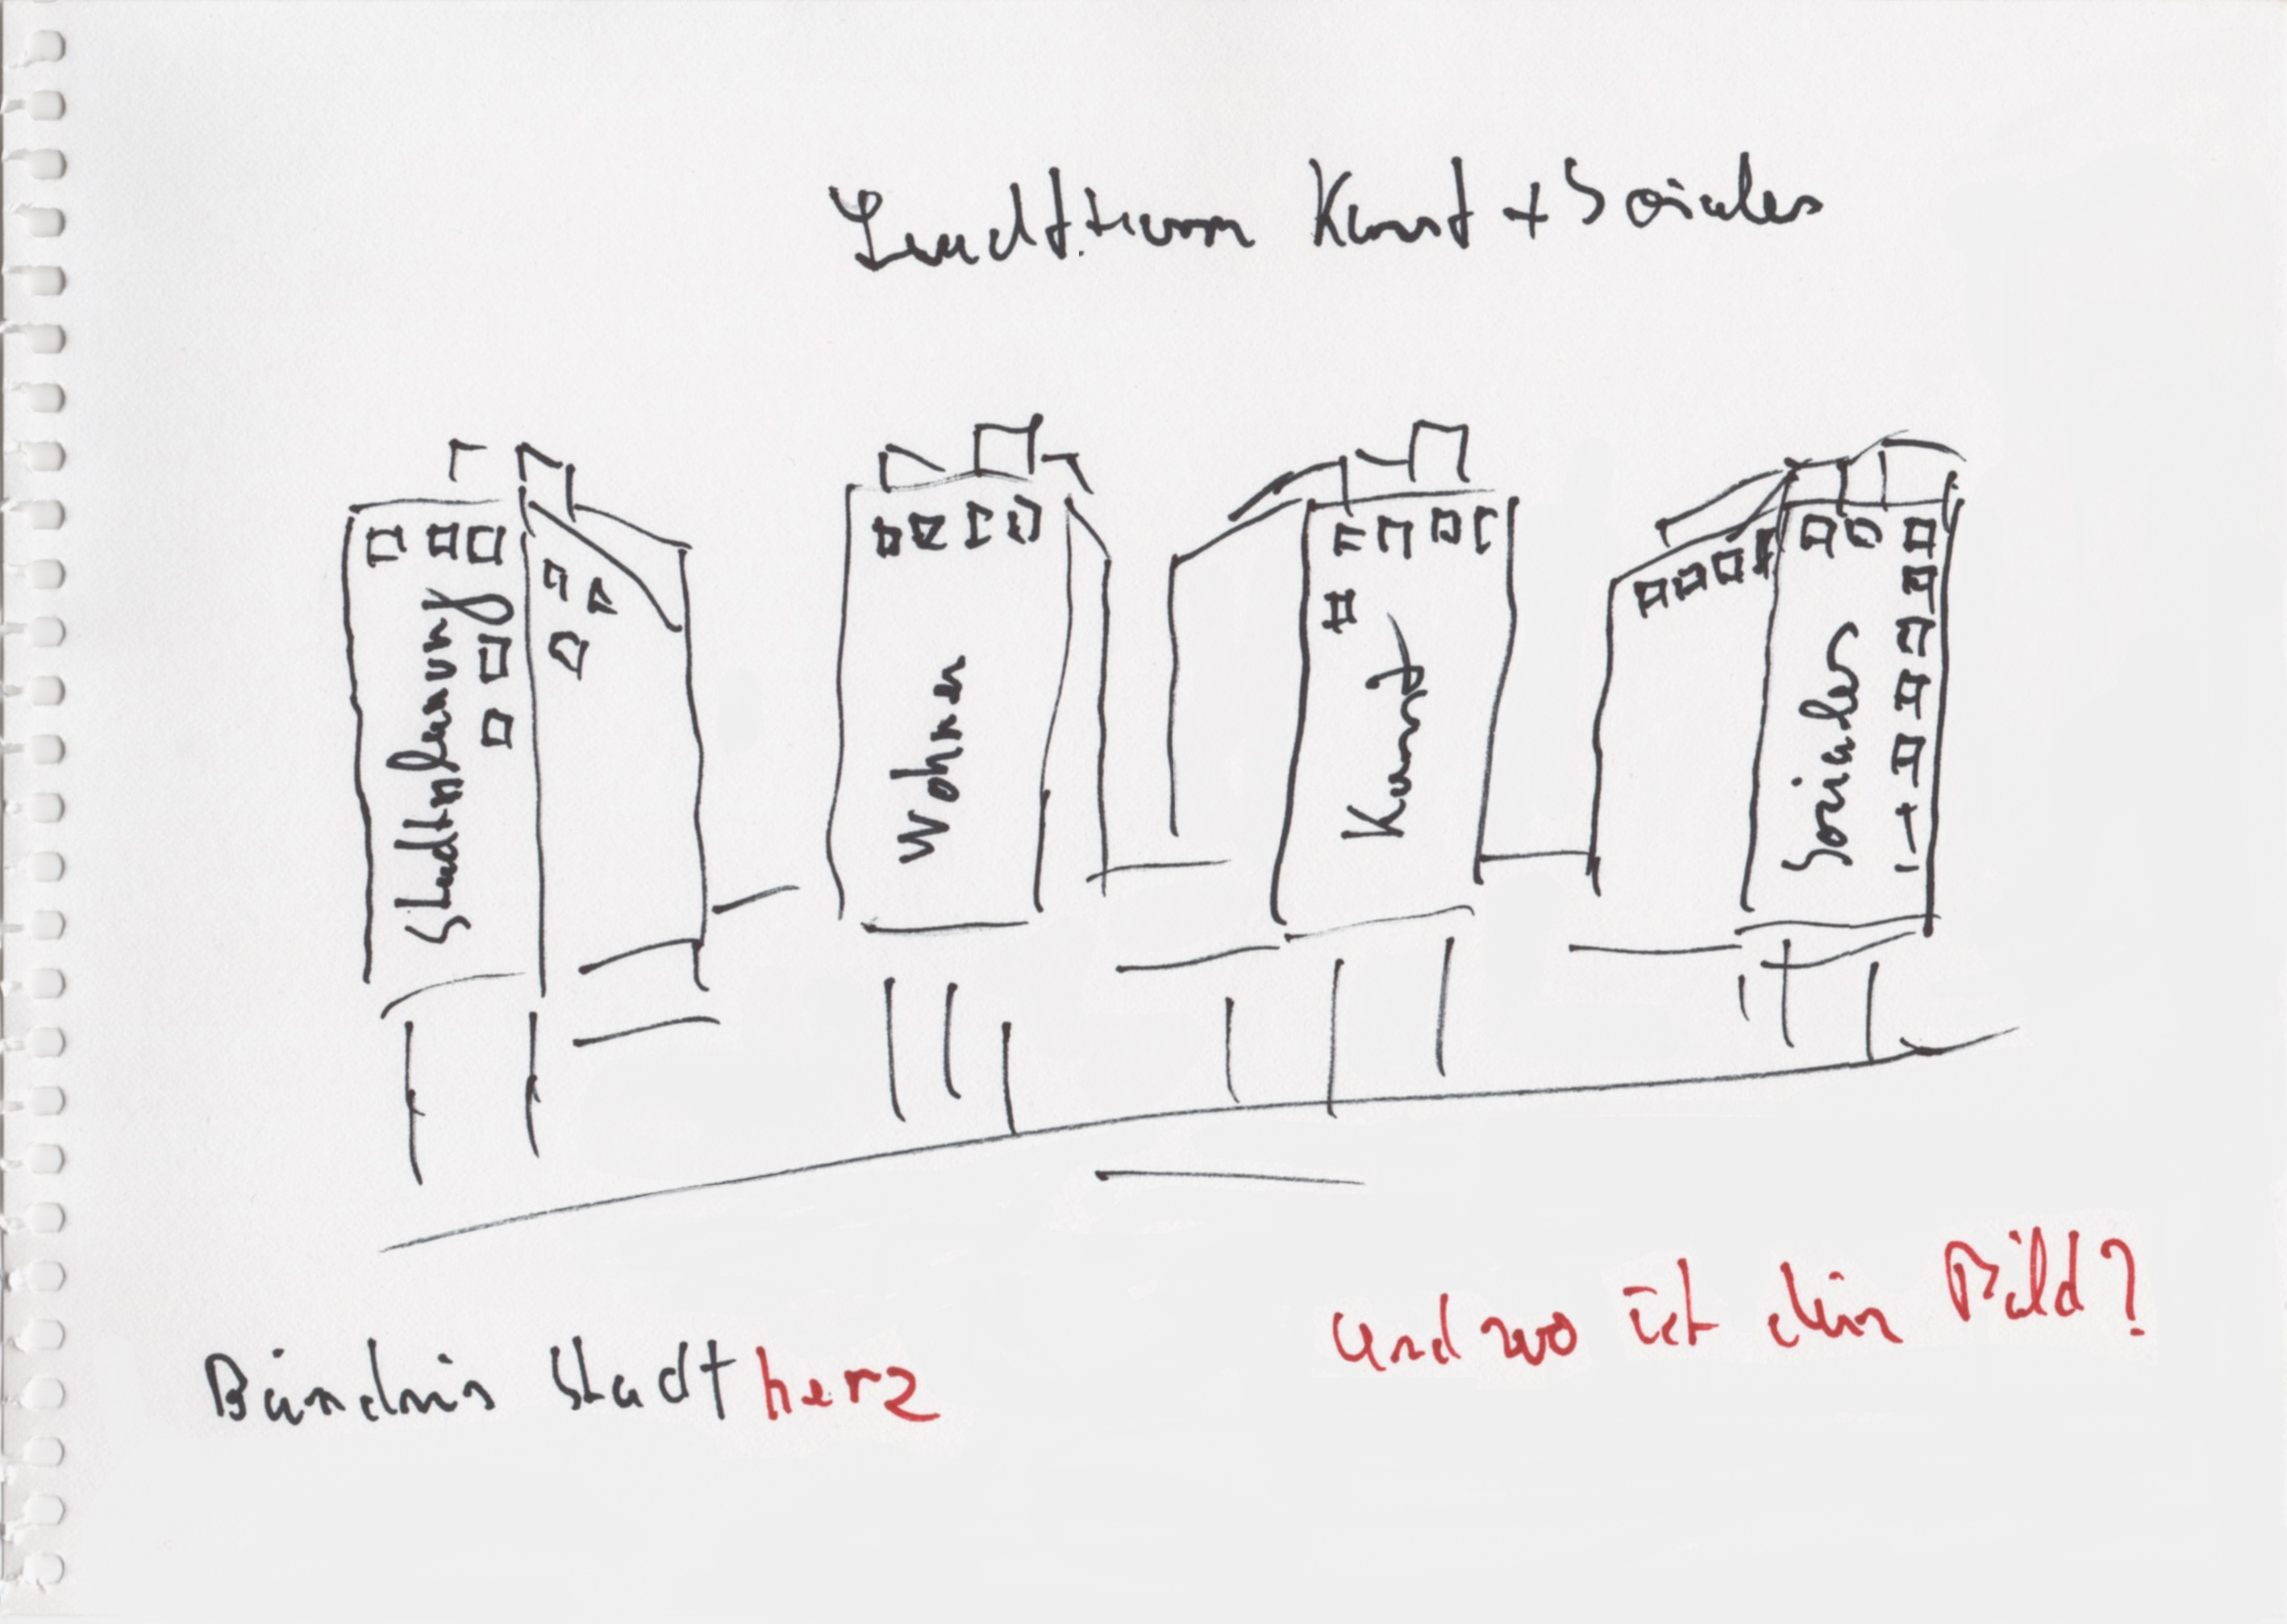 Leuchtturm Kunst + Soziales
Stadtplanung
Wohnen
Kunst
Soziales
Bündnis Stadtherz
und wo ist dein Bild?